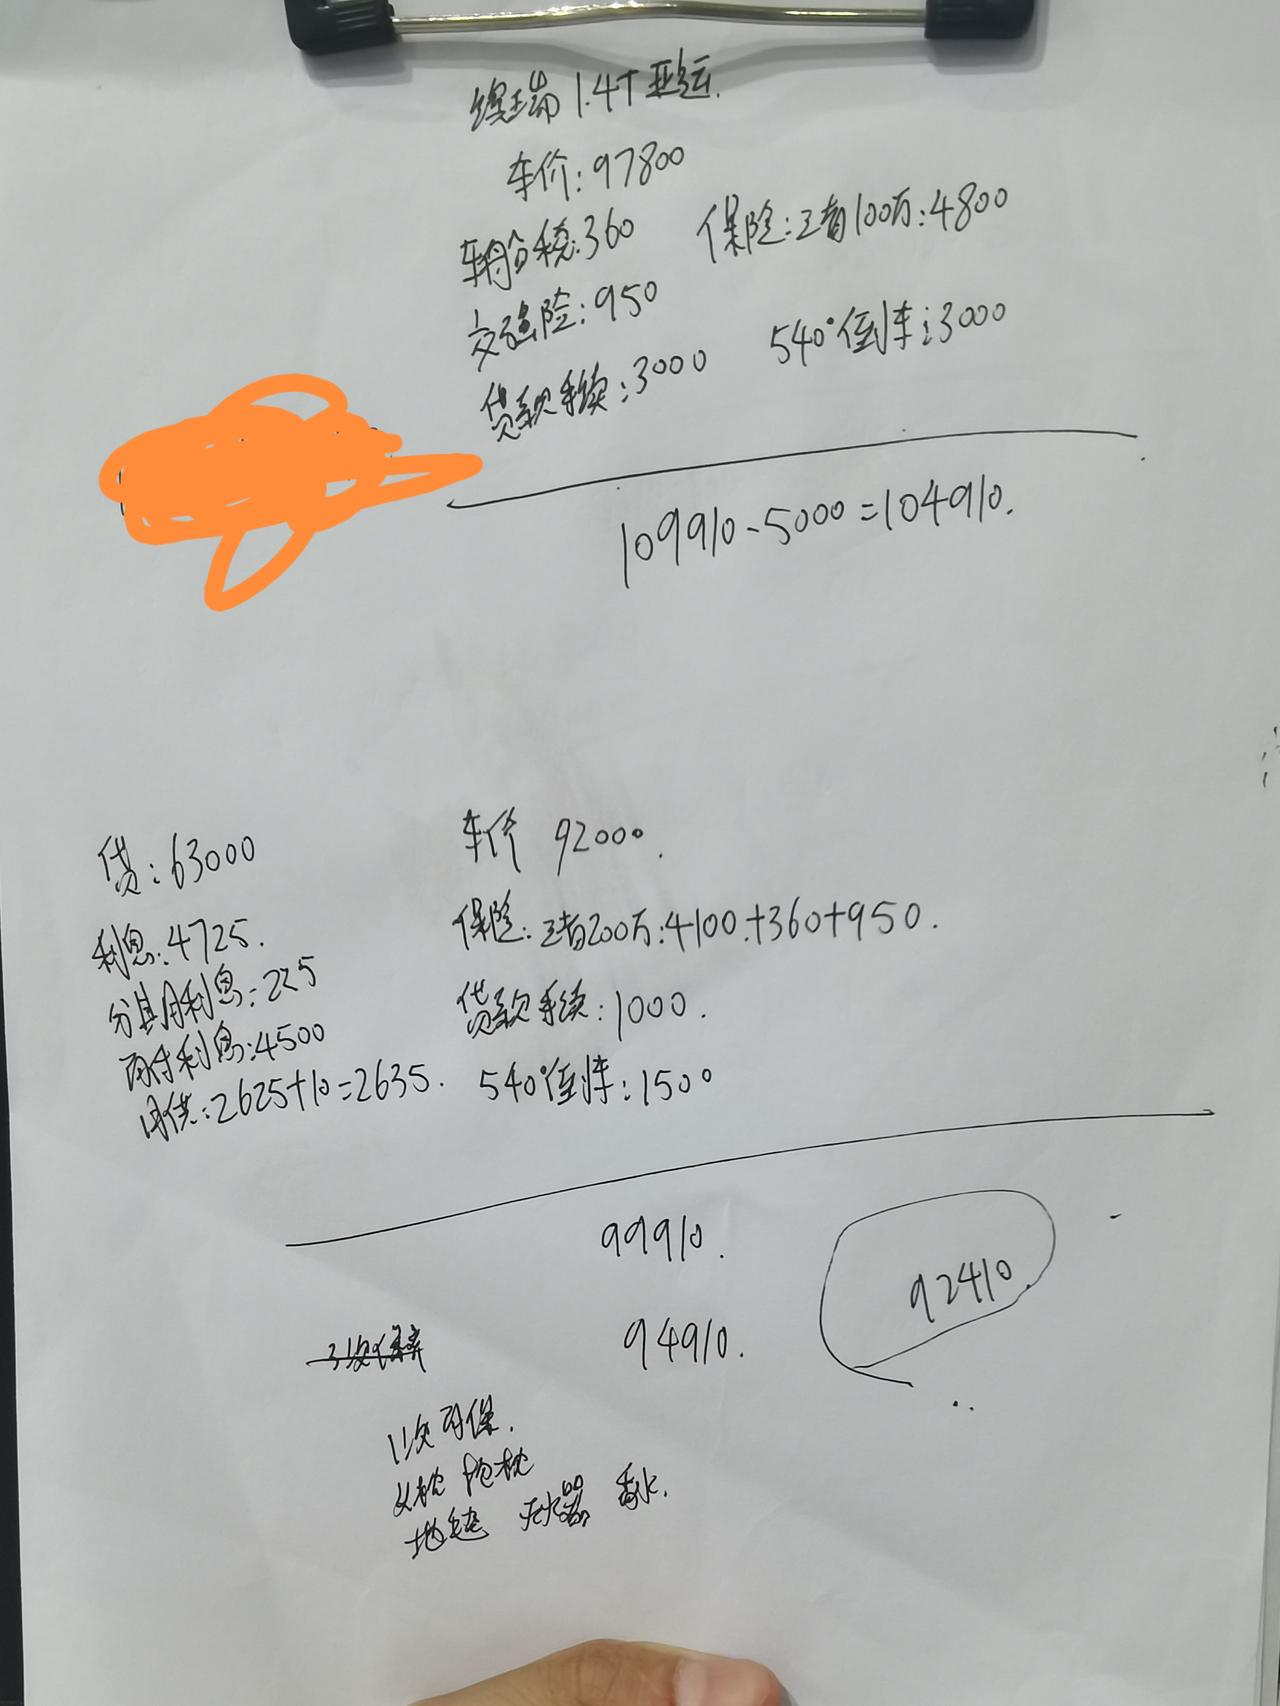 缤瑞 1.4T 亚运.
车价:97800
车船税:360 保险:三者100万:4800
交强险:950 540°倒车:3000
贷款手续:3000
109910-5000=104910.
贷:63000
利息:4725.
分期月利息:225
再付利息:4500
月供:2625+10=2635.
车价 92000.
保险:三者200万:4100.+360+950.
贷款手续:1000.
540°倒车:1500
99910.
94910.
92410
11次
头枕 抱枕
地毯 灭火器 香水.